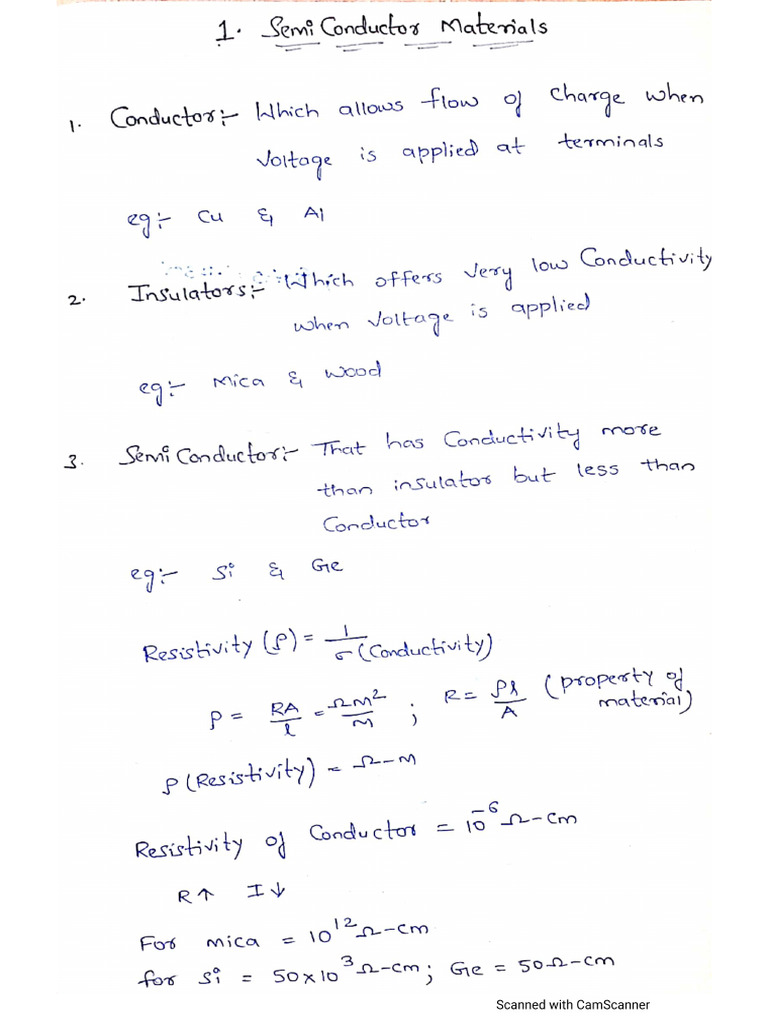 1. Semi Conductor Materials
1. Conductor:- Which allows flow of charge when
voltage is applied at terminals
eg:- Cu & Al
2. Insulators:- Which offers very low Conductivity
when voltage is applied
eg:- Mica & wood
3. Semi Conductor:- That has Conductivity more
than insulator but less than
Conductor
eg:- Si & Ge
Resistivity (ρ) = 1/σ (Conductivity)
ρ = RA/l = ΩM²/M ; R = ρl/A (property of
material)
ρ (Resistivity) = Ω-M
Resistivity of Conductor = 10⁻⁶ Ω-cm
R↑ I↓
For mica = 10¹² Ω-cm
for Si = 50×10³ Ω-cm; Ge = 50Ω-cm
Scanned with CamScanner